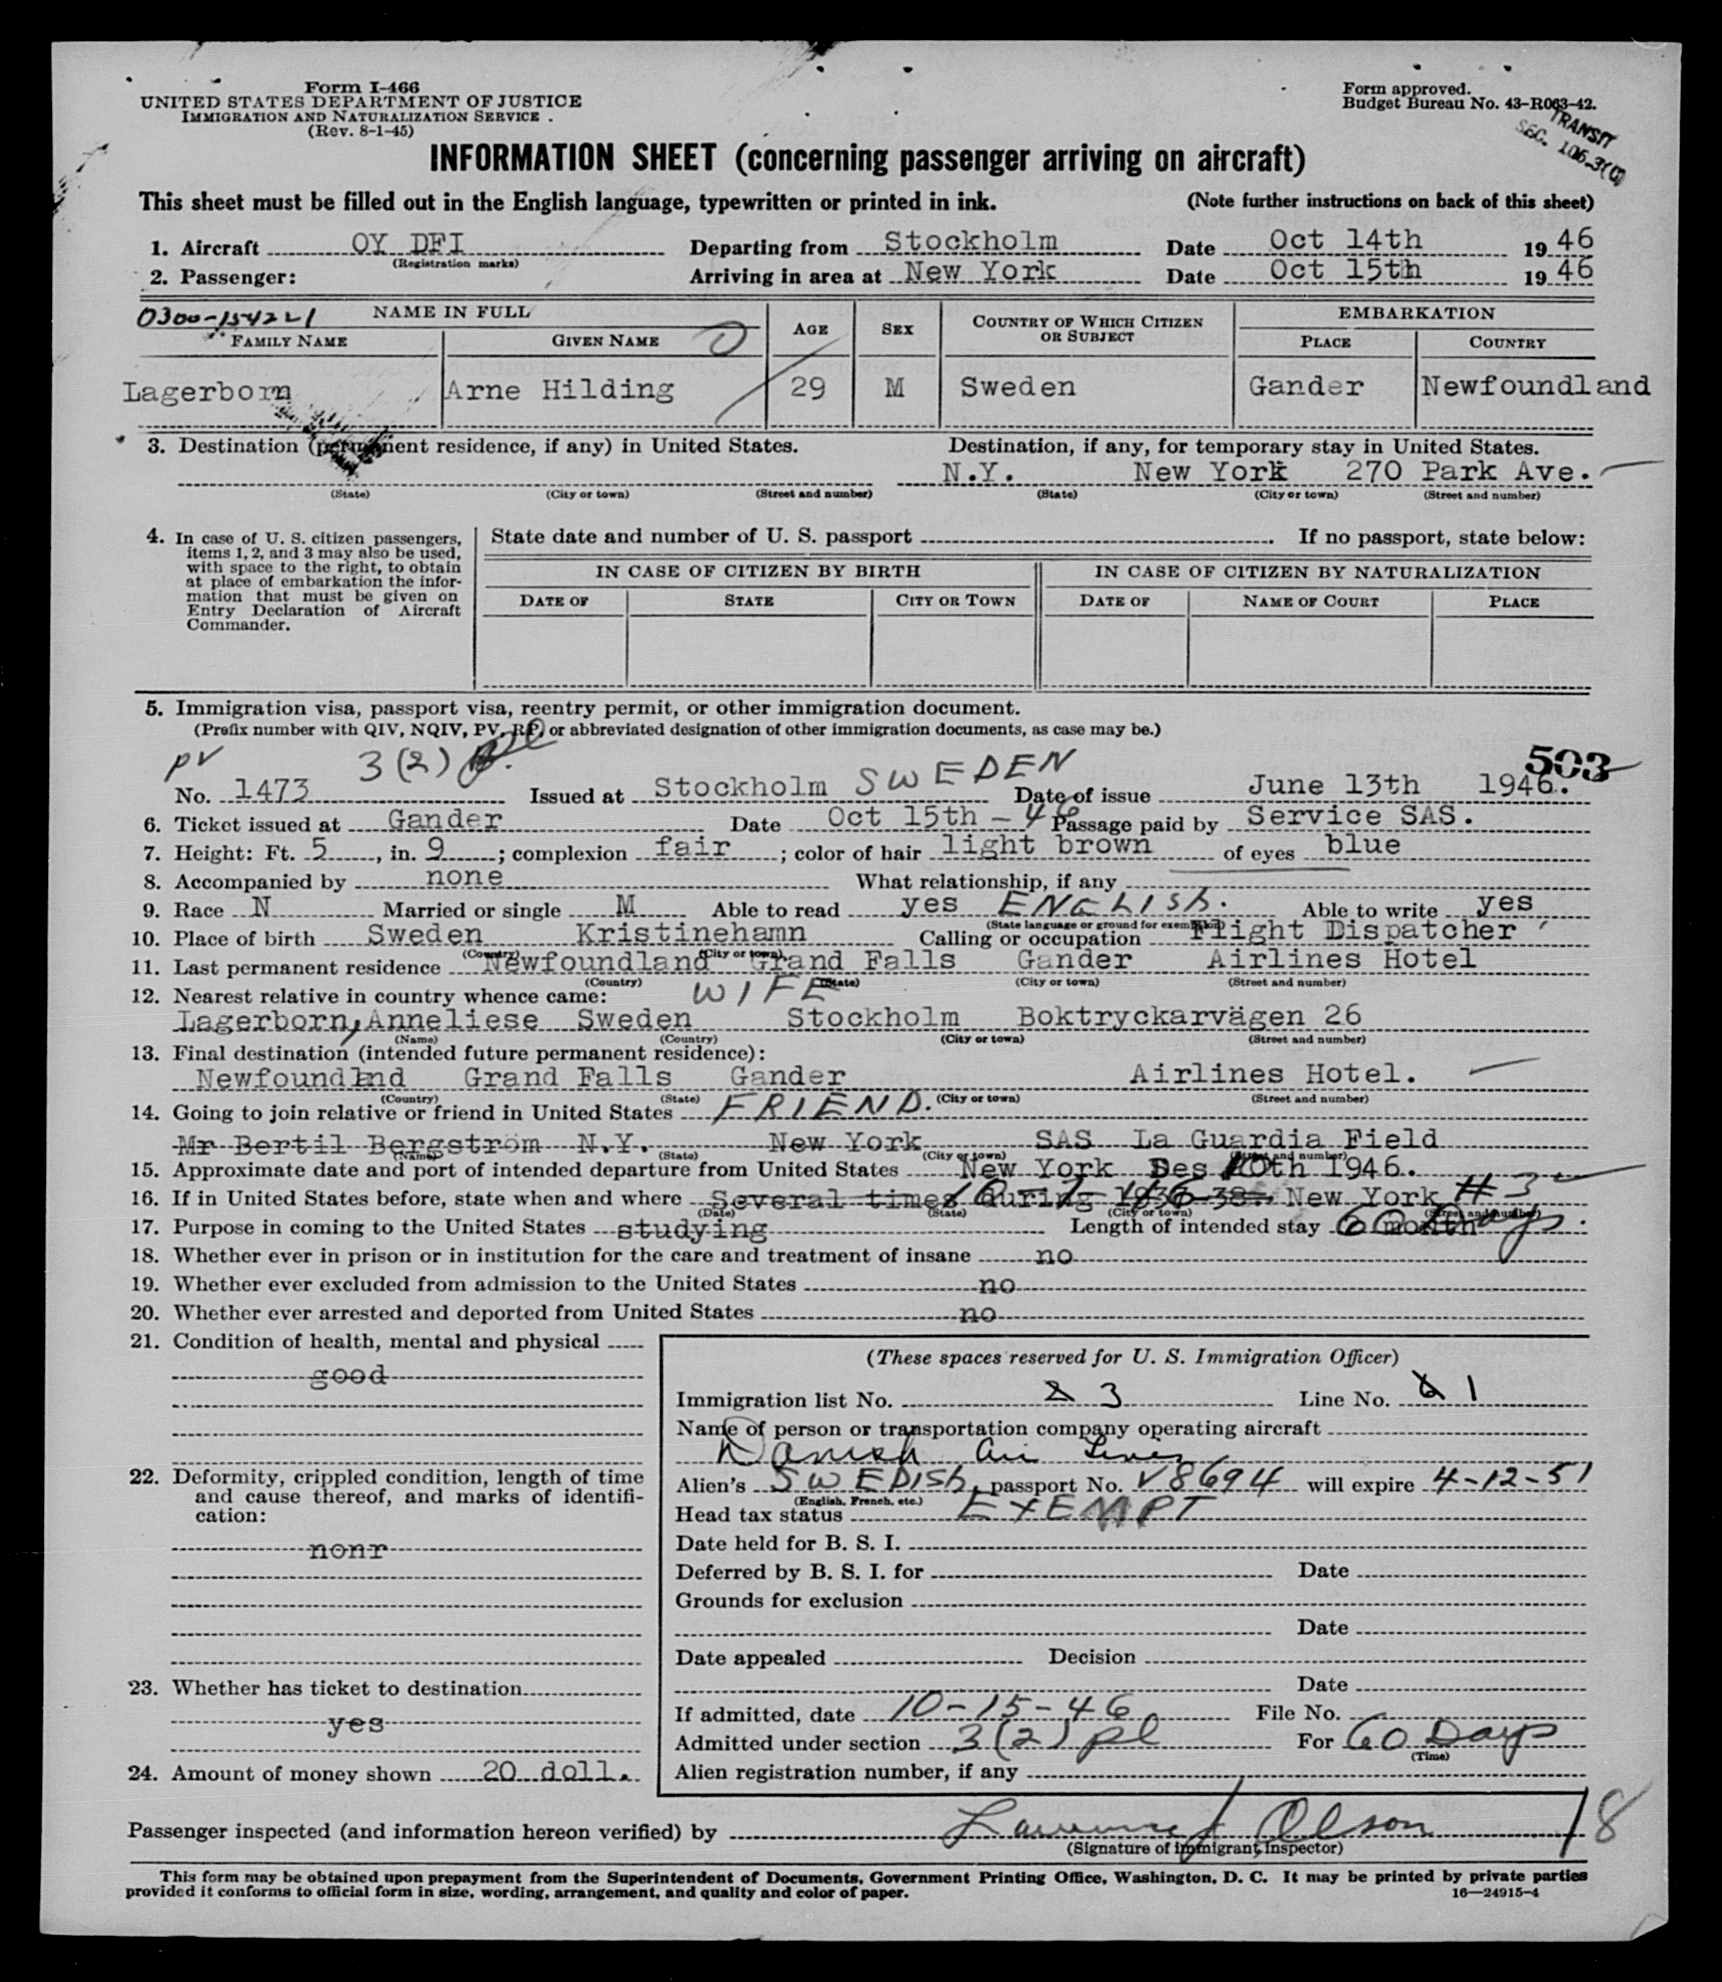 Form I-466
UNITED STATES DEPARTMENT OF JUSTICE
IMMIGRATION AND NATURALIZATION SERVICE
(Rev. 8-1-45)
Form approved.
Budget Bureau No. 43-R063-42.
TRANSIT
SEC. 106.3(
INFORMATION SHEET (concerning passenger arriving on aircraft)
This sheet must be filled out in the English language, typewritten or printed in ink. (Note further instructions on back of this sheet)
1. Aircraft OY DFI Departing from Stockholm Date Oct 14th 1946
(Registration marks)
2. Passenger: Arriving in area at New York Date Oct 15th 1946
0300-154221 NAME IN FULL AGE SEX COUNTRY OF WHICH CITIZEN OR SUBJECT EMBARKATION
FAMILY NAME GIVEN NAME PLACE COUNTRY
Lagerborn Arne Hilding 29 M Sweden Gander Newfoundland
3. Destination (permanent residence, if any) in United States. Destination, if any, for temporary stay in United States.
N.Y. New York 270 Park Ave.
(State) (City or town) (Street and number) (State) (City or town) (Street and number)
4. In case of U. S. citizen passengers, items 1, 2, and 3 may also be used, with space to the right, to obtain at place of embarkation the information that must be given on Entry Declaration of Aircraft Commander.
State date and number of U. S. passport If no passport, state below:
IN CASE OF CITIZEN BY BIRTH IN CASE OF CITIZEN BY NATURALIZATION
DATE OF STATE CITY OR TOWN DATE OF NAME OF COURT PLACE
5. Immigration visa, passport visa, reentry permit, or other immigration document.
(Prefix number with QIV, NQIV, PV, RP, or abbreviated designation of other immigration documents, as case may be.)
PV 3(2) pl 503
No. 1473 Issued at Stockholm SWEDEN Date of issue June 13th 1946.
6. Ticket issued at Gander Date Oct 15th - 46 Passage paid by Service SAS.
7. Height: Ft. 5, in. 9; complexion fair; color of hair light brown of eyes blue
8. Accompanied by none What relationship, if any
9. Race N Married or single M Able to read yes ENGLISH. Able to write yes
(State language or ground for exemption)
10. Place of birth Sweden Kristinehamn Calling or occupation Flight Dispatcher
(Country) (City or town)
11. Last permanent residence Newfoundland Grand Falls Gander Airlines Hotel
(Country) (State) (City or town) (Street and number)
12. Nearest relative in country whence came: WIFE
Lagerborn, Anneliese Sweden Stockholm Boktryckarvägen 26
(Name) (Country) (City or town) (Street and number)
13. Final destination (intended future permanent residence):
Newfoundlnd Grand Falls Gander Airlines Hotel.
(Country) (State) (City or town) (Street and number)
14. Going to join relative or friend in United States FRIEND.
Mr Bertil Bergström N.Y. New York SAS La Guardia Field
(Name) (State) (City or town) (Street and number)
15. Approximate date and port of intended departure from United States New York Des 10th 1946.
16. If in United States before, state when and where Several times during 1936-38. New York # 3
(Date) (State) (City or town) (Street and number)
17. Purpose in coming to the United States studying Length of intended stay 60 Days.
18. Whether ever in prison or in institution for the care and treatment of insane no
19. Whether ever excluded from admission to the United States no
20. Whether ever arrested and deported from United States no
21. Condition of health, mental and physical
good
22. Deformity, crippled condition, length of time and cause thereof, and marks of identification:
nonr
23. Whether has ticket to destination
yes
24. Amount of money shown 20 doll.
(These spaces reserved for U. S. Immigration Officer)
Immigration list No. 2 3 Line No. 6 1
Name of person or transportation company operating aircraft
Danish Air Lines
Alien's SWEDISH, passport No. V8694 will expire 4-12-51
(English, French, etc.)
Head tax status EXEMPT
Date held for B. S. I.
Deferred by B. S. I. for Date
Grounds for exclusion
Date
Date appealed Decision
Date
If admitted, date 10-15-46 File No.
Admitted under section 3(2) pl For 60 Days
(Time)
Alien registration number, if any
Passenger inspected (and information hereon verified) by Lawrence J Olson 18
(Signature of immigrant inspector)
This form may be obtained upon prepayment from the Superintendent of Documents, Government Printing Office, Washington, D. C. It may be printed by private parties
provided it conforms to official form in size, wording, arrangement, and quality and color of paper. 16—24915-4